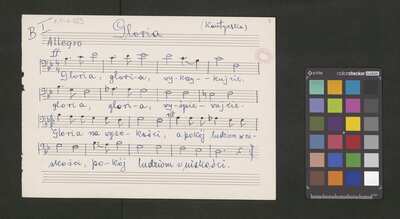 B I
Gloria
(Kontyczka)
Allegro
Gloria, glori-a, wy-krzy--kujcie.
glori-a, glori-a, wy-śpie--wujcie.
Gloria na wyso-kości, a pokój ludziom w ni-
skości, po-kój ludziom w niskości.
colorchecker